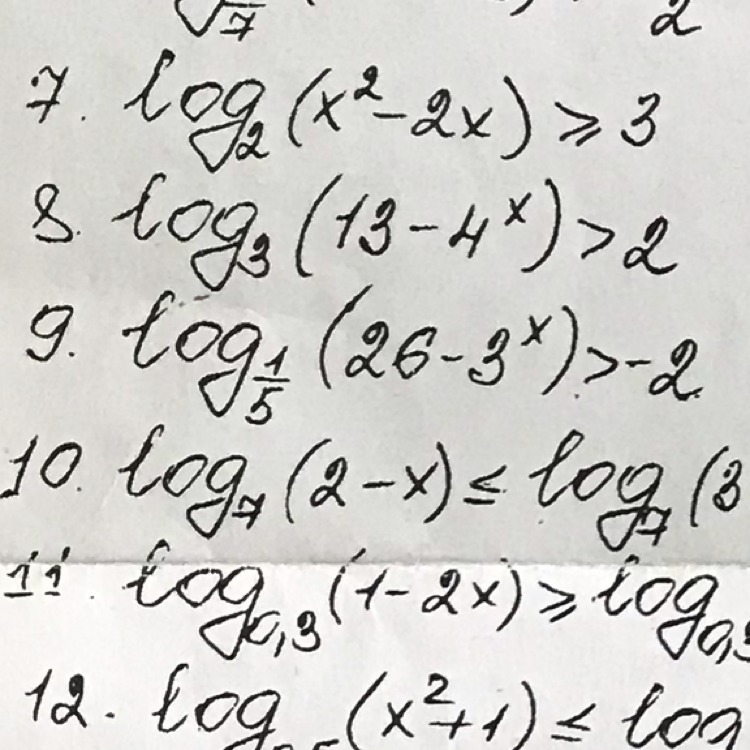 7. log₂(x²-2x) ⩾ 3
8. log₃(13-4ˣ)>2
9. log_{1/5}(26-3ˣ)>-2
10. log₇(2-x)≤ log₇(3
11. log_{0,3}(1-2x)⩾log_{0,3
12. log (x²+1)≤ log